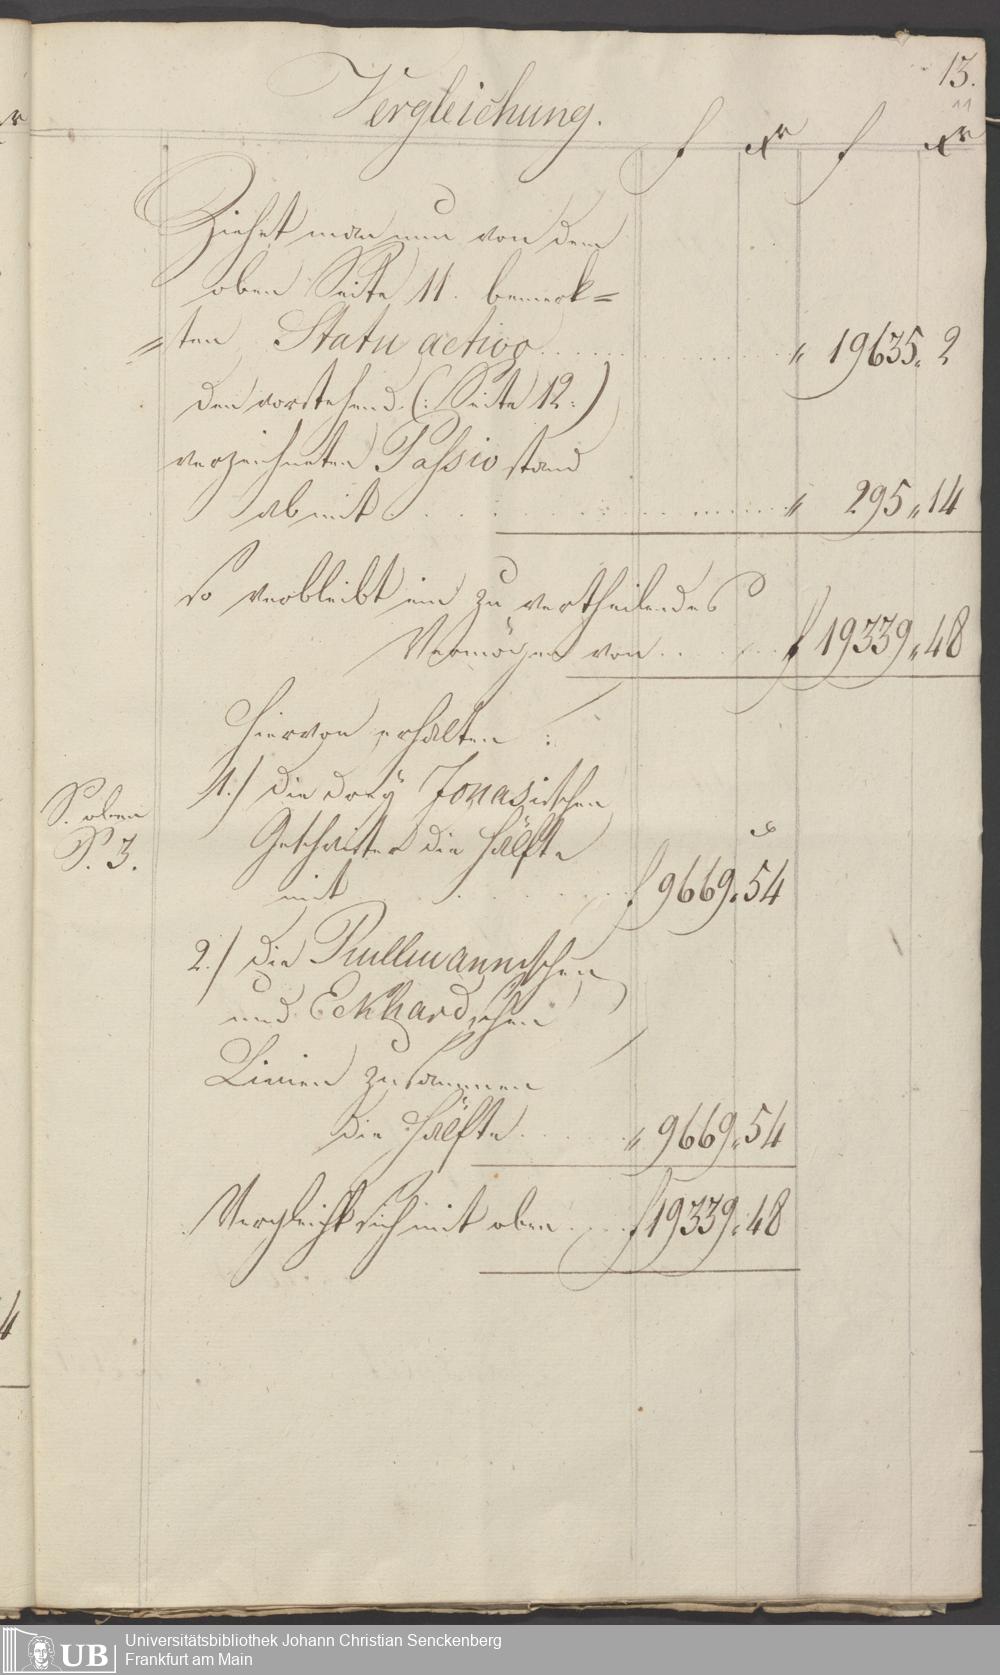 13.
11
Vergleichung.
f xr f xr
Ziehet man nun von dem
oben Seite 11. bemerk=
=ten Statu activo . . . . . . . . . . " 19635 " 2
den vorstehend (: Seite 12 :)
verzeichneten Passiv stand
ab mit . . . . . . . . . . " 295 " 14
so verbleibt ein zu vertheilendes
Vermögen von . . . . . f 19339 " 48
hiervon erhalten :
1.) die drey Jonasischen
S. oben
S. 3.
Geschwister die Hälfte
mit . . . . . . . f 9669 " 54
2.) die Prullmannischen
und Eckhardschen
Linien zusammen
die Hälfte . . . . . " 9669 " 54
Vergleicht sich mit oben . . . . f 19339 " 48
4
Universitätsbibliothek Johann Christian Senckenberg
Frankfurt am Main
UB